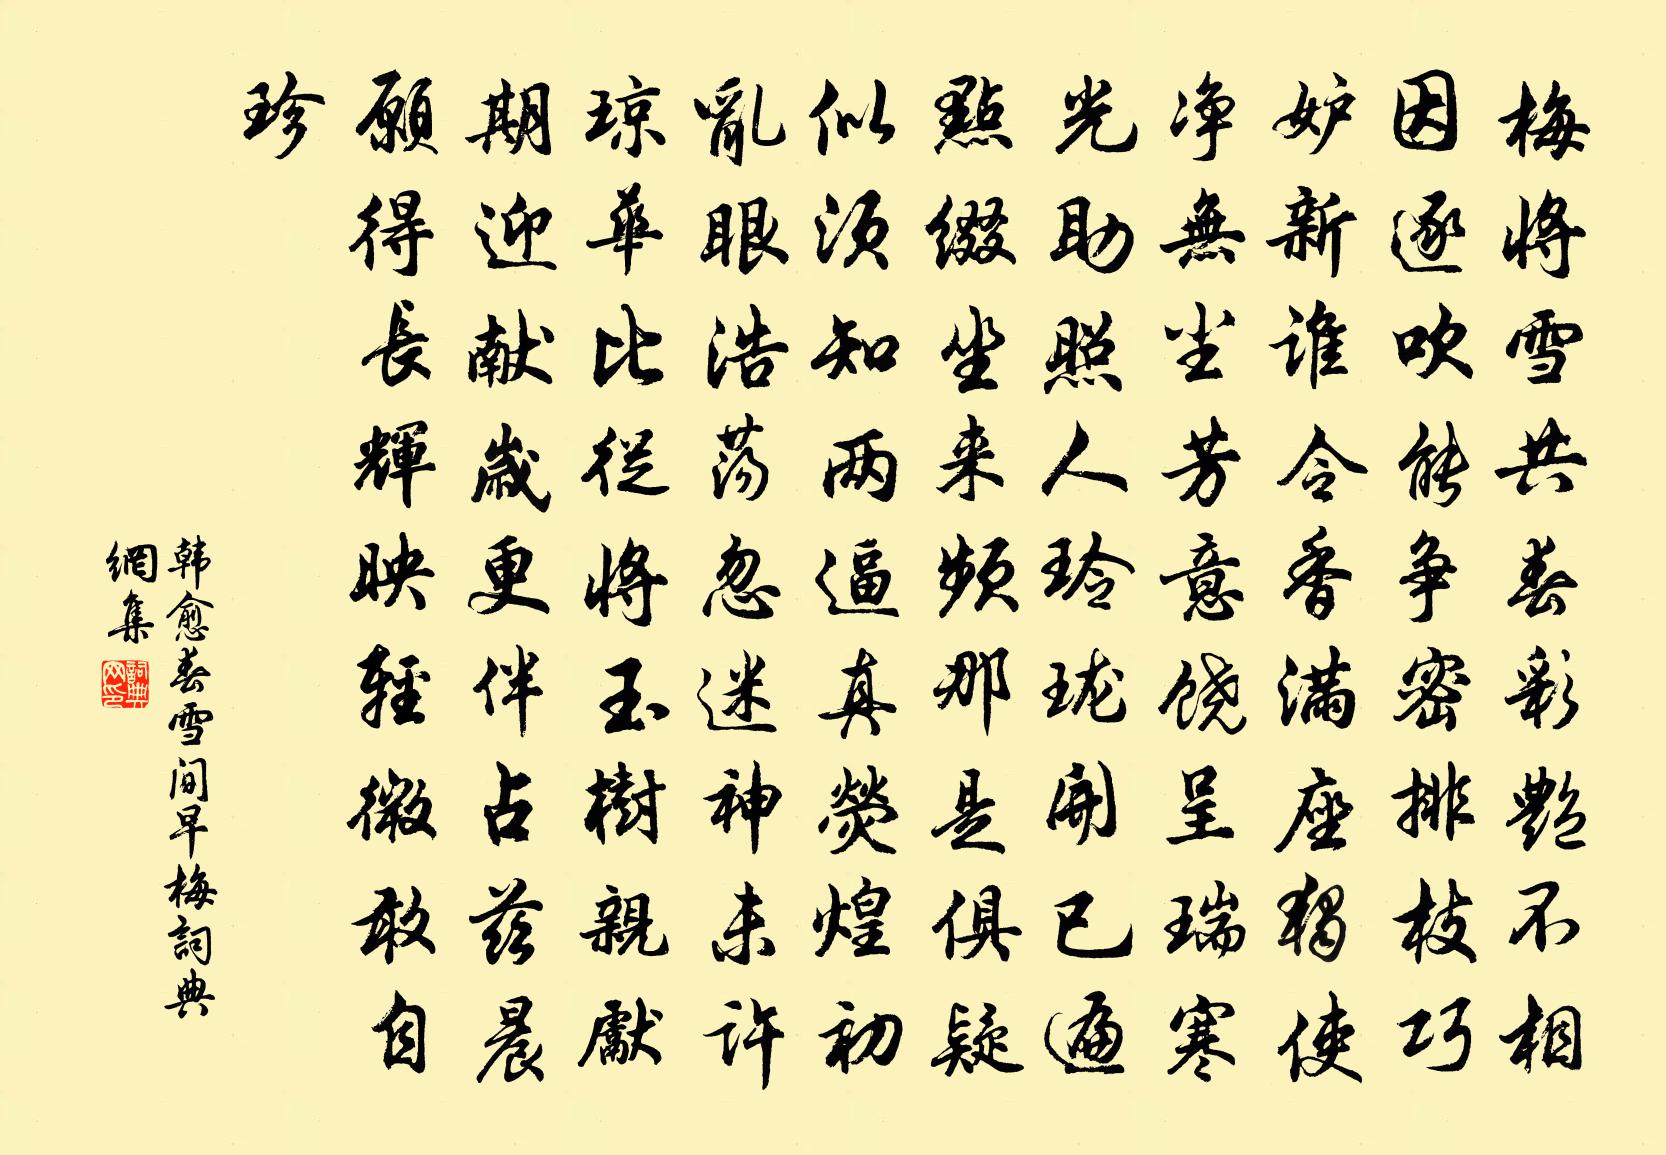 梅將雪共春彩艷不相
因逐吹能争密排枝巧
妒新谁令香满座獨使
净無尘芳意饶呈瑞寒
光助照人玲珑開已遍
點缀坐来频那是俱疑
似须知两逼真荧煌初
亂眼浩荡忽迷神未许
琼華比從將玉樹親獻
期迎献歲更伴占兹晨
願得長輝映輕微敢自
珍
韩愈春雪间早梅詞典
網集
詞典网印